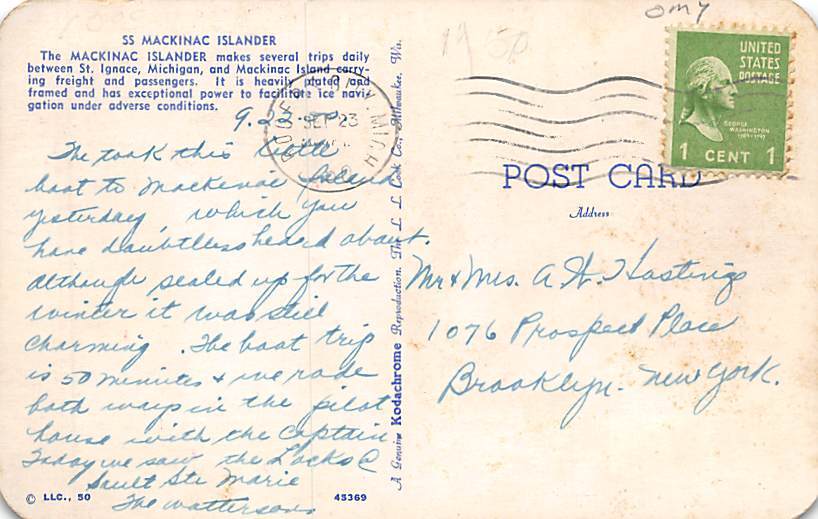 SS MACKINAC ISLANDER
The MACKINAC ISLANDER makes several trips daily
between St. Ignace, Michigan, and Mackinac Island carry-
ing freight and passengers. It is heavily plated and
framed and has exceptional power to facilitate ice navi-
gation under adverse conditions.
9.22
SEP 23
MICH
The took this little
boat to Mackinac Island
yesterday which you
have doubtless heard about.
Although sealed up for the
winter it was still
charming. The boat trip
is 50 minutes & we rode
both ways in the pilot
house with the Captain
Today we saw the Locks @
Sault Ste Marie
The Wattersons
© LLC., 50
45369
A Genuine Kodachrome Reproduction. The L. L. Cook Co., Milwaukee, Wis.
1950
omy
UNITED
STATES
POSTAGE
GEORGE
WASHINGTON
1789-1797
1 CENT 1
POST CARD
Address
Mr & Mrs. A. H. Hastings
1076 Prospect Place
Brooklyn. New York.